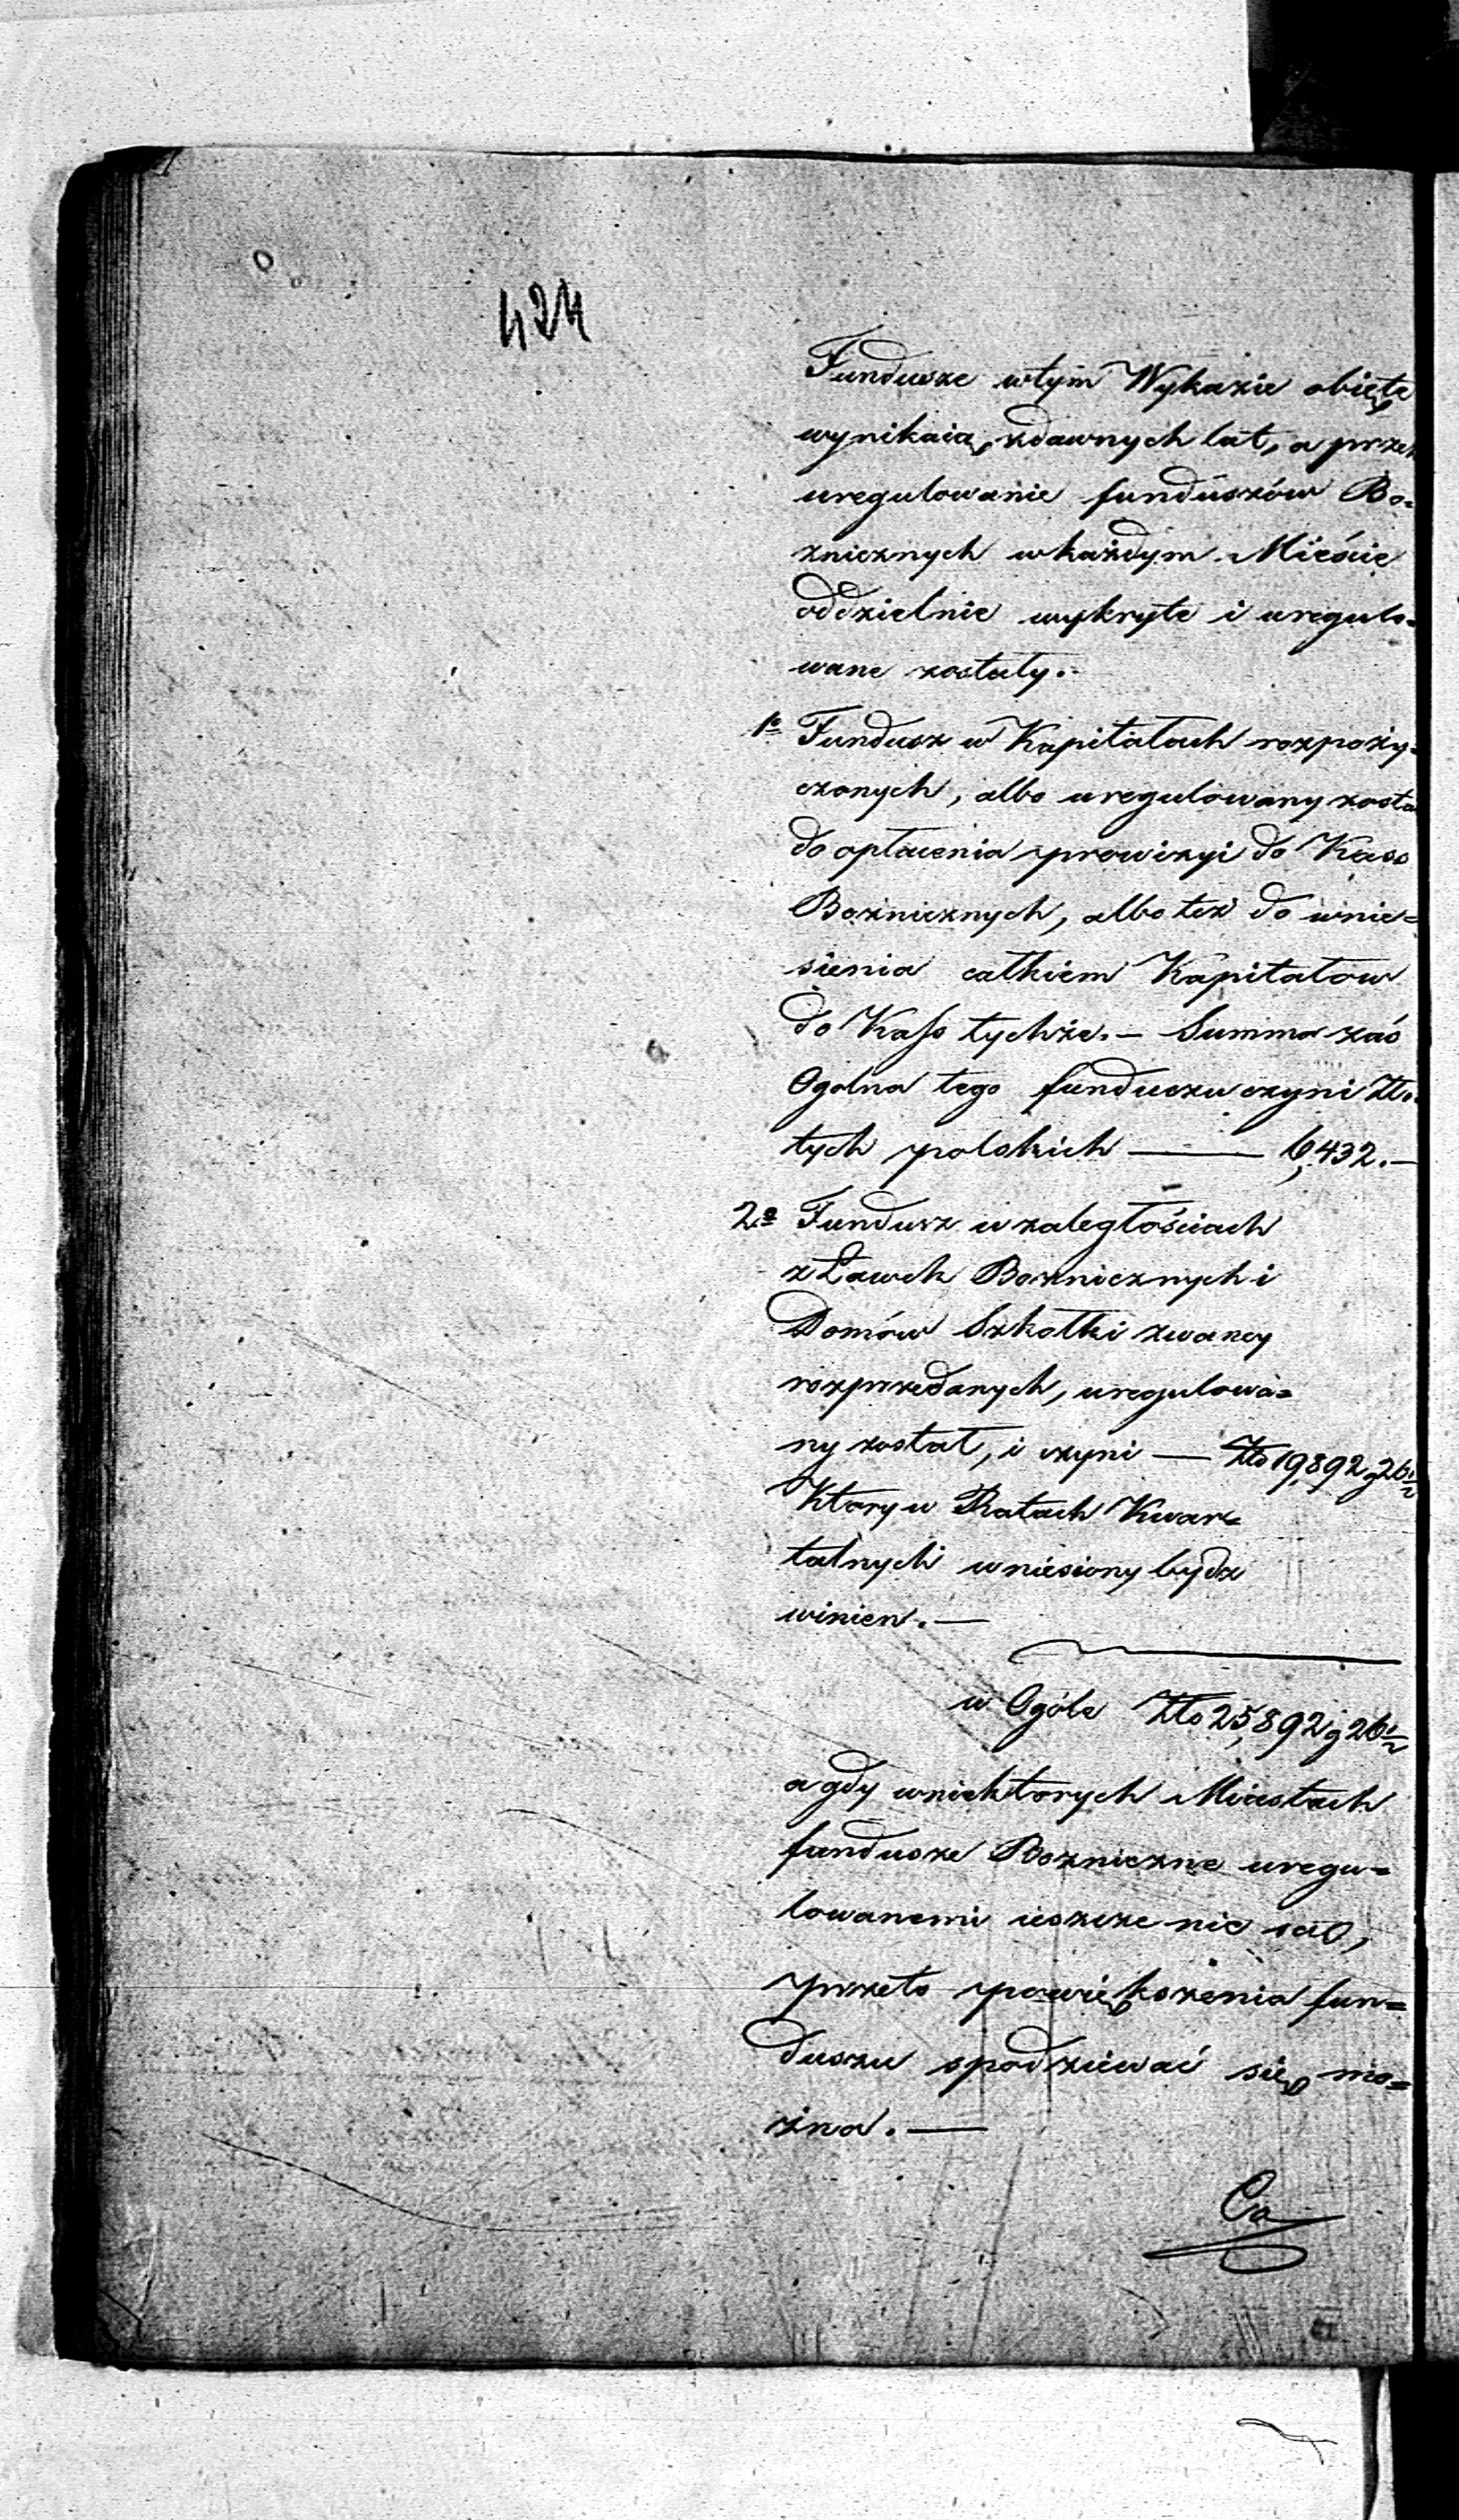 424
Fundusze wtym Wykazie obięte
wynikaią zdawnych lat, a przez
uregulowanie funduszów Bo=
znicznych wkażdym Mieście
oddzielnie wykryte i uregulo=
wane zostały.
1o Fundusz w Kapitałach rozpoży=
czonych, albo uregulowany został
do opłacenia prowizyi do Kass
Bożnicznych, albo też do wnie=
sienia całkiem Kapitałow
do Kass tychże. — Summa zaś
Ogolna tego funduszu czyni Zło=
tych polskich — 6,432. —
2o Fundusz w zaległościach
z Ławek Boznicznych i
Domów Szkołki zwaney
rozprzedanych, uregulowa=
ny został, i czyni — Złp 19,892 g 26 1/2
Ktory w Ratach Kwar=
talnych wniesiony bydz
winien. —
w Ogóle Złp 25,892 g 26 1/2
a gdy wniektorych Miastach
fundusze Bozniczne uregu=
lowanemi ieszcze nie są,
przeto powiększenia fun=
duszu spodziewać się mo=
żna. —
Ca